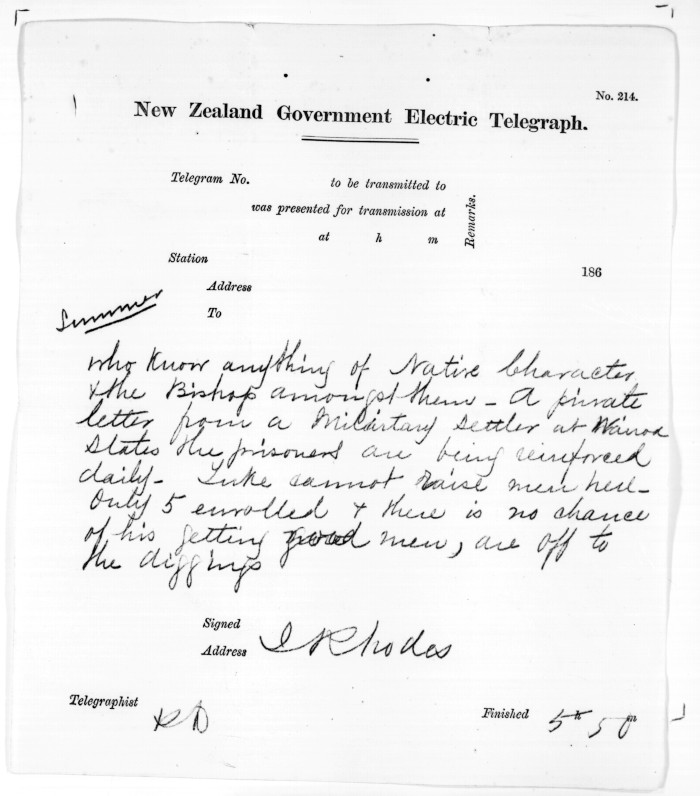 No. 214.
New Zealand Government Electric Telegraph.
Telegram No. to be transmitted to
was presented for transmission at
at h m
Remarks.
Station 186
Address
To
Summer
who know anything of Native Character
& the Bishop amongst them - A private
letter from a Military Settler at Wairoa
States the prisoners are being reinforced
daily - Luke cannot raise men here -
Only 5 enrolled & there is no chance
of his getting good men, are off to
the diggings
Signed
Address
J Rhodes
Telegraphist
Finished 5h 50m